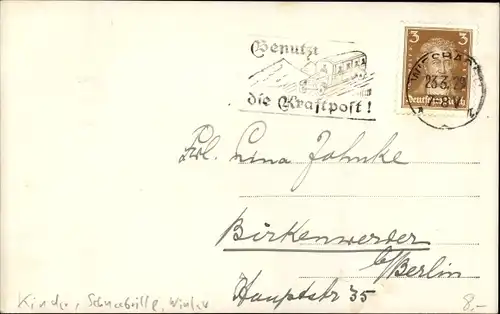 Benutzt
die Kraftpost!
3 3
23.3.29
Deutsches Reich
Frl. Lina Johnke
Birkenwerder
b/Berlin
Hauptstr 35
Kinder, Schneebrille, Winter
8,-